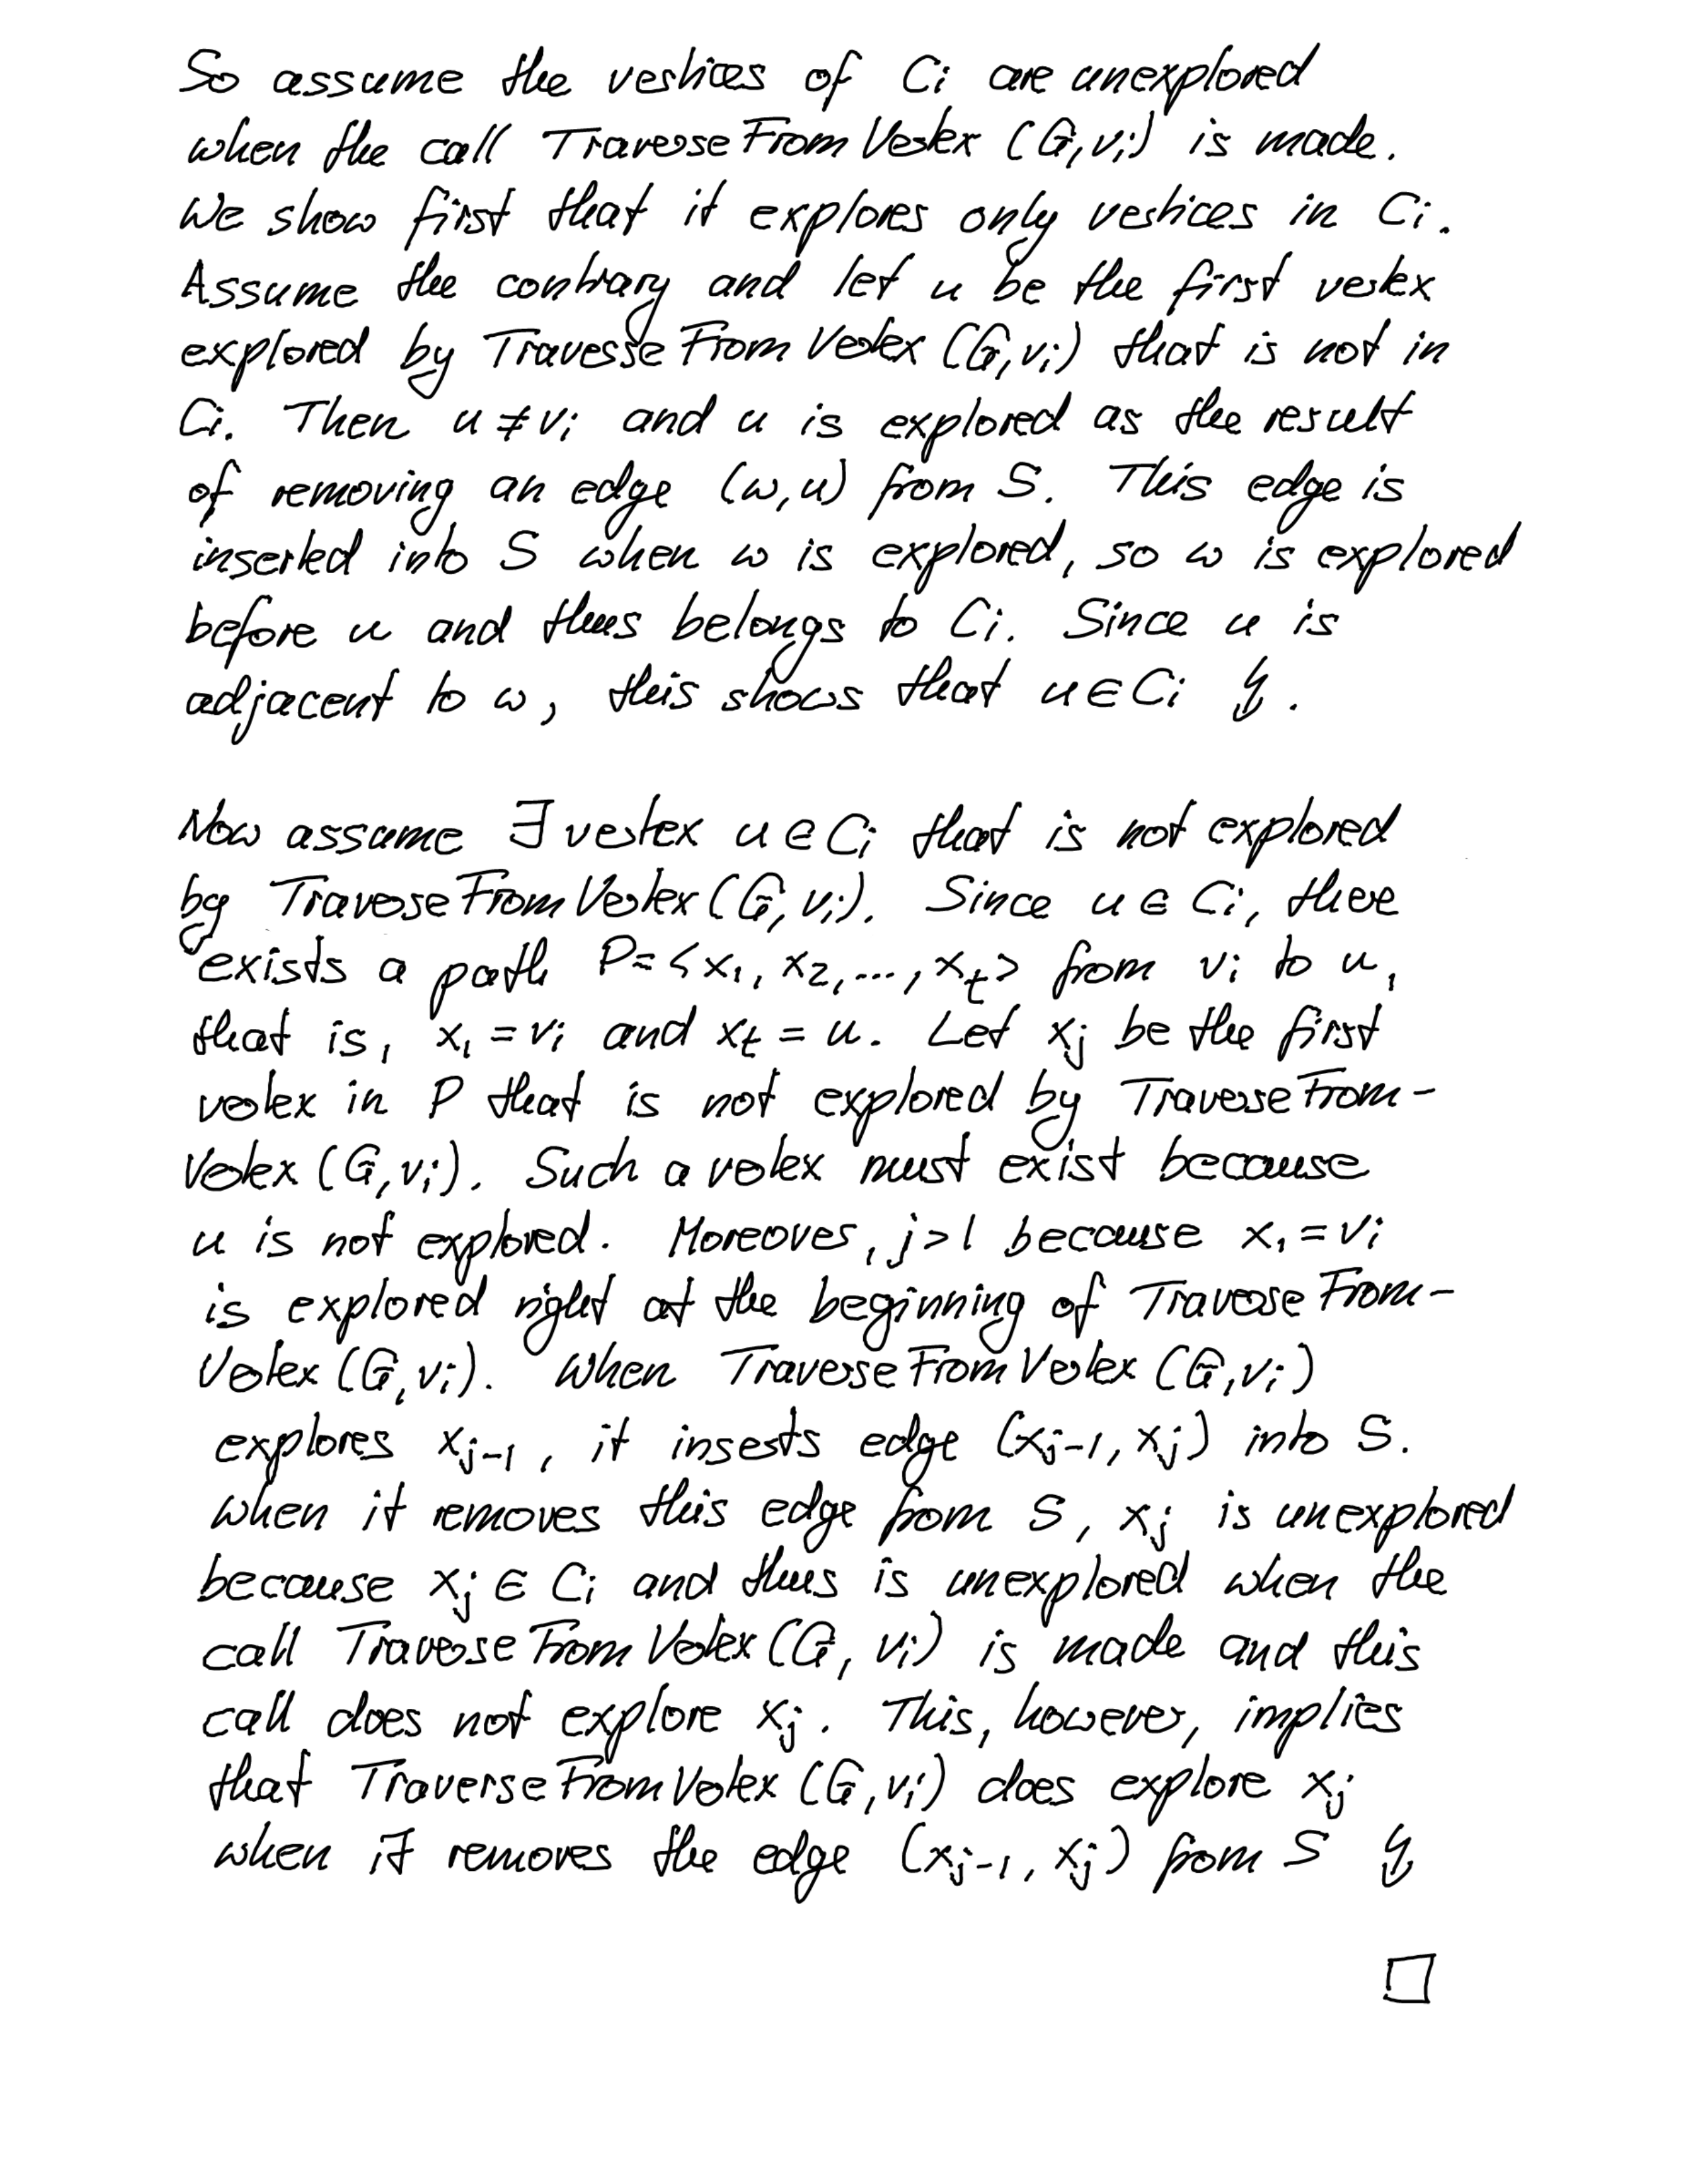 So assume the vertices of Ci are unexplored
when the call TraverseFromVertex (G, vi) is made.
We show first that it explores only vertices in Ci.
Assume the contrary and let u be the first vertex
explored by TraverseFromVertex (G, vi) that is not in
Ci. Then u ≠ vi and u is explored as the result
of removing an edge (w, u) from S. This edge is
inserted into S when w is explored, so w is explored
before u and thus belongs to Ci. Since u is
adjacent to w, this shows that u ∈ Ci ↯.
Now assume ∃ vertex u ∈ Ci that is not explored
by TraverseFromVertex (G, vi). Since u ∈ Ci, there
exists a path P = <x1, x2, ..., xt> from vi to u,
that is, x1 = vi and xt = u. Let xj be the first
vertex in P that is not explored by TraverseFrom-
Vertex (G, vi). Such a vertex must exist because
u is not explored. Moreover, j > 1 because x1 = vi
is explored right at the beginning of TraverseFrom-
Vertex (G, vi). When TraverseFromVertex (G, vi)
explores xj-1, it inserts edge (xj-1, xj) into S.
When it removes this edge from S, xj is unexplored
because xj ∈ Ci and thus is unexplored when the
call TraverseFromVertex (G, vi) is made and this
call does not explore xj. This, however, implies
that TraverseFromVertex (G, vi) does explore xj
when it removes the edge (xj-1, xj) from S ↯
□